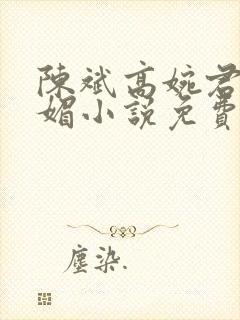 陳斌高婉君
媚小說免費
塵染.